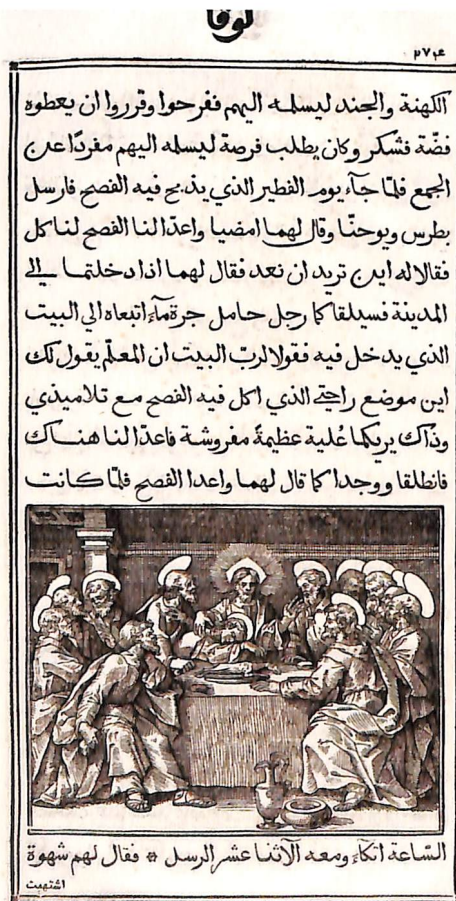 لوقا
٢٧٤
الكهنة والجند ليسلمه اليهم ففرحوا وقرروا ان يعطوه
فضّة فشكر وكان يطلب فرصة ليسلمه اليهم مفردًا عن
الجمع فلمّا جآء يوم الفطير الذي يذبح فيه الفصح فارسل
بطرس ويوحنّا وقال لهما امضيا واعدّا لنا الفصح لناكل
فقالا له اين تريد ان نعد فقال لهما اذا دخلتما الي
المدينة فسيلقاكما رجل حامل جرة مآء اتبعاه الي البيت
الذي يدخل فيه فقولا لربّ البيت ان المعلّم يقول لك
اين موضع راحتي الذي اكل فيه الفصح مع تلاميذي
وذاك يريكما عُلية عظيمةً مفروشة فاعدّا لنا هناك
فانطلقا ووجدا كما قال لهما واعدا الفصح فلمّا كانت
السّاعة اتكاء ومعه الاثنا عشر الرسل * فقال لهم شهوة
اشتهيت